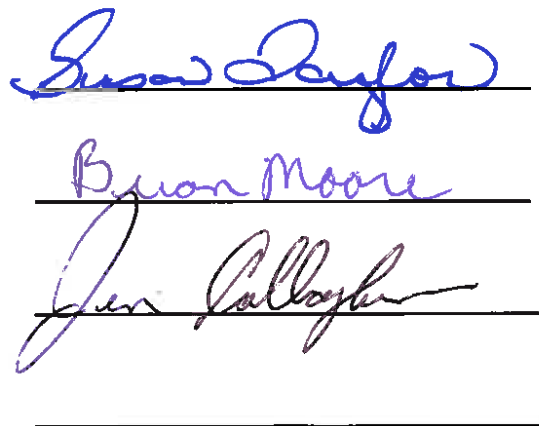 Susan Taylor
Brian Moore
Jen Callaghan